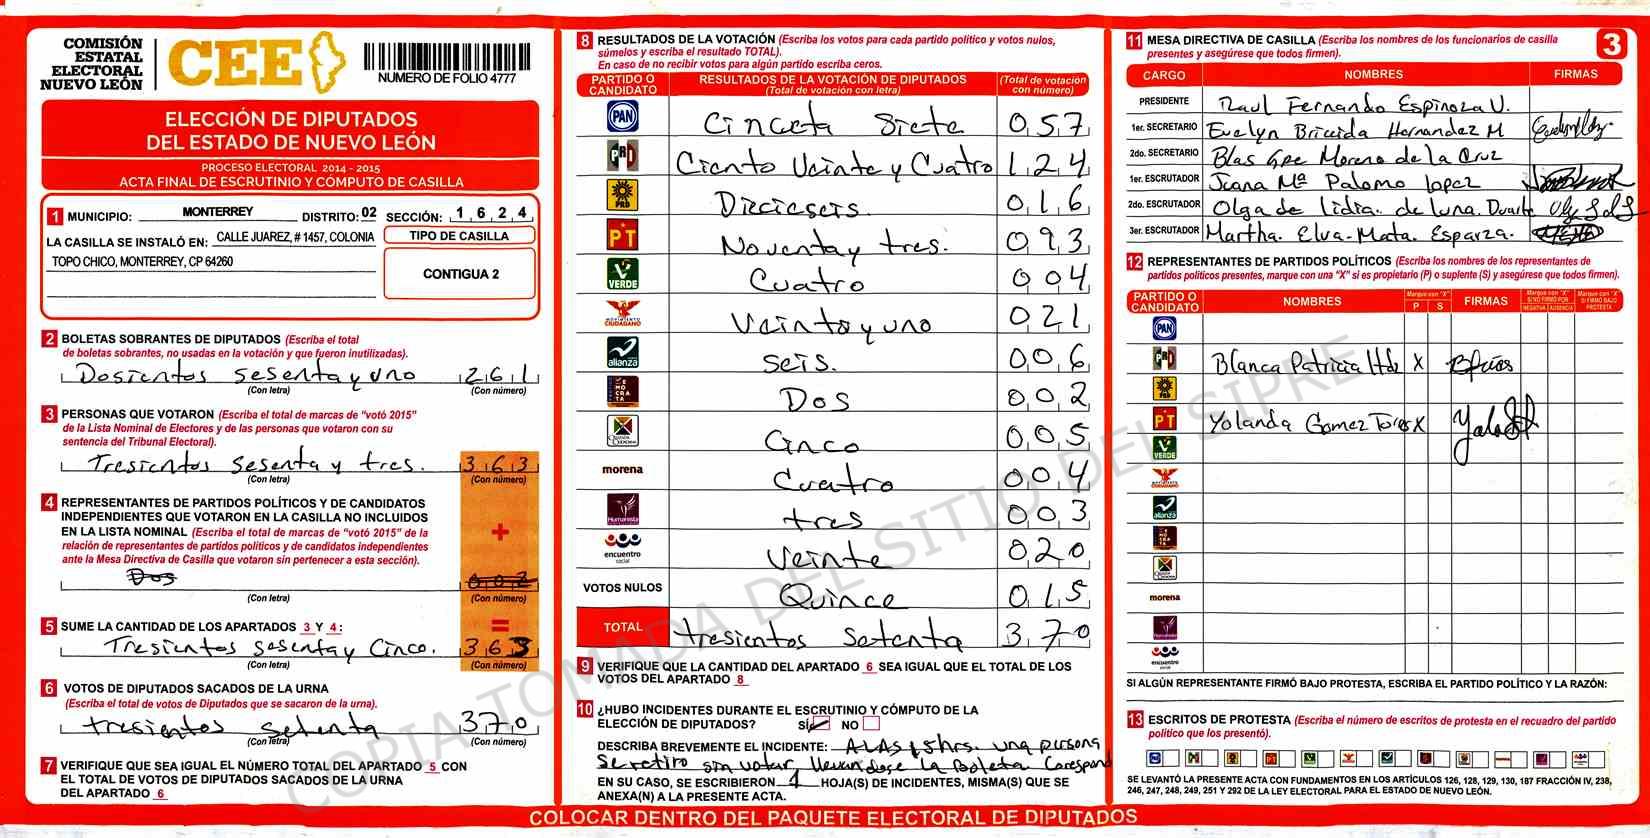 COMISIÓN
ESTATAL
ELECTORAL
NUEVO LEÓN
CEE
NUMERO DE FOLIO 4777
ELECCIÓN DE DIPUTADOS
DEL ESTADO DE NUEVO LEÓN
PROCESO ELECTORAL 2014 - 2015
ACTA FINAL DE ESCRUTINIO Y CÓMPUTO DE CASILLA
1 MUNICIPIO: MONTERREY DISTRITO: 02 SECCIÓN: 1 6 2 4
LA CASILLA SE INSTALÓ EN: CALLE JUAREZ, # 1457, COLONIA
TOPO CHICO, MONTERREY, CP 64260
TIPO DE CASILLA
CONTIGUA 2
2 BOLETAS SOBRANTES DE DIPUTADOS (Escriba el total
de boletas sobrantes, no usadas en la votación y que fueron inutilizadas).
Dosientos sesenta y uno 261
(Con letra) (Con número)
3 PERSONAS QUE VOTARON (Escriba el total de marcas de "votó 2015"
de la Lista Nominal de Electores y de las personas que votaron con su
sentencia del Tribunal Electoral).
Tresientos sesenta y tres. 363
(Con letra) (Con número)
4 REPRESENTANTES DE PARTIDOS POLÍTICOS Y DE CANDIDATOS
INDEPENDIENTES QUE VOTARON EN LA CASILLA NO INCLUIDOS
EN LA LISTA NOMINAL (Escriba el total de marcas de "votó 2015" de la
relación de representantes de partidos políticos y de candidatos independientes
ante la Mesa Directiva de Casilla que votaron sin pertenecer a esta sección).
+
Dos 002
(Con letra) (Con número)
5 SUME LA CANTIDAD DE LOS APARTADOS 3 Y 4: =
Tresientos sesenta y Cinco. 363
(Con letra) (Con número)
6 VOTOS DE DIPUTADOS SACADOS DE LA URNA
(Escriba el total de votos de Diputados que se sacaron de la urna).
tresientos setenta 370
(Con letra) (Con número)
7 VERIFIQUE QUE SEA IGUAL EL NÚMERO TOTAL DEL APARTADO 5 CON
EL TOTAL DE VOTOS DE DIPUTADOS SACADOS DE LA URNA
DEL APARTADO 6
8 RESULTADOS DE LA VOTACIÓN (Escriba los votos para cada partido político y votos nulos,
súmelos y escriba el resultado TOTAL).
En caso de no recibir votos para algún partido escriba ceros.
PARTIDO O CANDIDATO RESULTADOS DE LA VOTACIÓN DE DIPUTADOS (Total de votación con letra) (Total de votación con número)
PAN Cincueta Siete 057
PRI Ciento Veinte y Cuatro 124
PRD Diecieseis. 016
PT Noventa y tres. 093
VERDE Cuatro 004
MOVIMIENTO CIUDADANO Veinte y uno 021
alianza seis. 006
DEMOCRATA Dos 002
Cinco 005
morena Cuatro 004
Humanista tres 003
encuentro social Veinte 020
VOTOS NULOS Quince 015
TOTAL tresientos setenta 370
9 VERIFIQUE QUE LA CANTIDAD DEL APARTADO 6 SEA IGUAL QUE EL TOTAL DE LOS
VOTOS DEL APARTADO 8
10 ¿HUBO INCIDENTES DURANTE EL ESCRUTINIO Y CÓMPUTO DE LA
ELECCIÓN DE DIPUTADOS? SÍ NO
DESCRIBA BREVEMENTE EL INCIDENTE: A LAS 15hrs. una persona
se retiro sin votar llevandose la Boleta Corespond
EN SU CASO, SE ESCRIBIERON 1 HOJA(S) DE INCIDENTES, MISMA(S) QUE SE
ANEXA(N) A LA PRESENTE ACTA.
11 MESA DIRECTIVA DE CASILLA (Escriba los nombres de los funcionarios de casilla
presentes y asegúrese que todos firmen).
3
CARGO NOMBRES FIRMAS
PRESIDENTE Raul Fernando Espinoza V.
1er. SECRETARIO Evelyn Briceida Hernandez M
2do. SECRETARIO Blas Gpe Moreno de la Cruz
1er. ESCRUTADOR Juana Mª Palomo lopez
2do. ESCRUTADOR Olga de lidia. de luna. Duarte
3er. ESCRUTADOR Martha. Elva-Mata. Esparza.
12 REPRESENTANTES DE PARTIDOS POLÍTICOS (Escriba los nombres de los representantes de
partidos políticos presentes, marque con una "X" si es propietario (P) o suplente (S) y asegúrese que todos firmen).
PARTIDO O CANDIDATO NOMBRES Marque con "X" P S FIRMAS Marque con "X" SI NO FIRMÓ POR NEGATIVA AUSENCIA Marque con "X" SI FIRMÓ BAJO PROTESTA
PAN
PRI Blanca Patricia Hdz X
PRD
PT Yolanda Gomez Torres X
VERDE
alianza
morena
encuentro social
SI ALGÚN REPRESENTANTE FIRMÓ BAJO PROTESTA, ESCRIBA EL PARTIDO POLÍTICO Y LA RAZÓN:
13 ESCRITOS DE PROTESTA (Escriba el número de escritos de protesta en el recuadro del partido
político que los presentó).
SE LEVANTÓ LA PRESENTE ACTA CON FUNDAMENTOS EN LOS ARTÍCULOS 126, 128, 129, 130, 187 FRACCIÓN IV, 238,
246, 247, 248, 249, 251 Y 292 DE LA LEY ELECTORAL PARA EL ESTADO DE NUEVO LEÓN.
COLOCAR DENTRO DEL PAQUETE ELECTORAL DE DIPUTADOS
COPIA TOMADA DEL SITIO DEL SIPRE